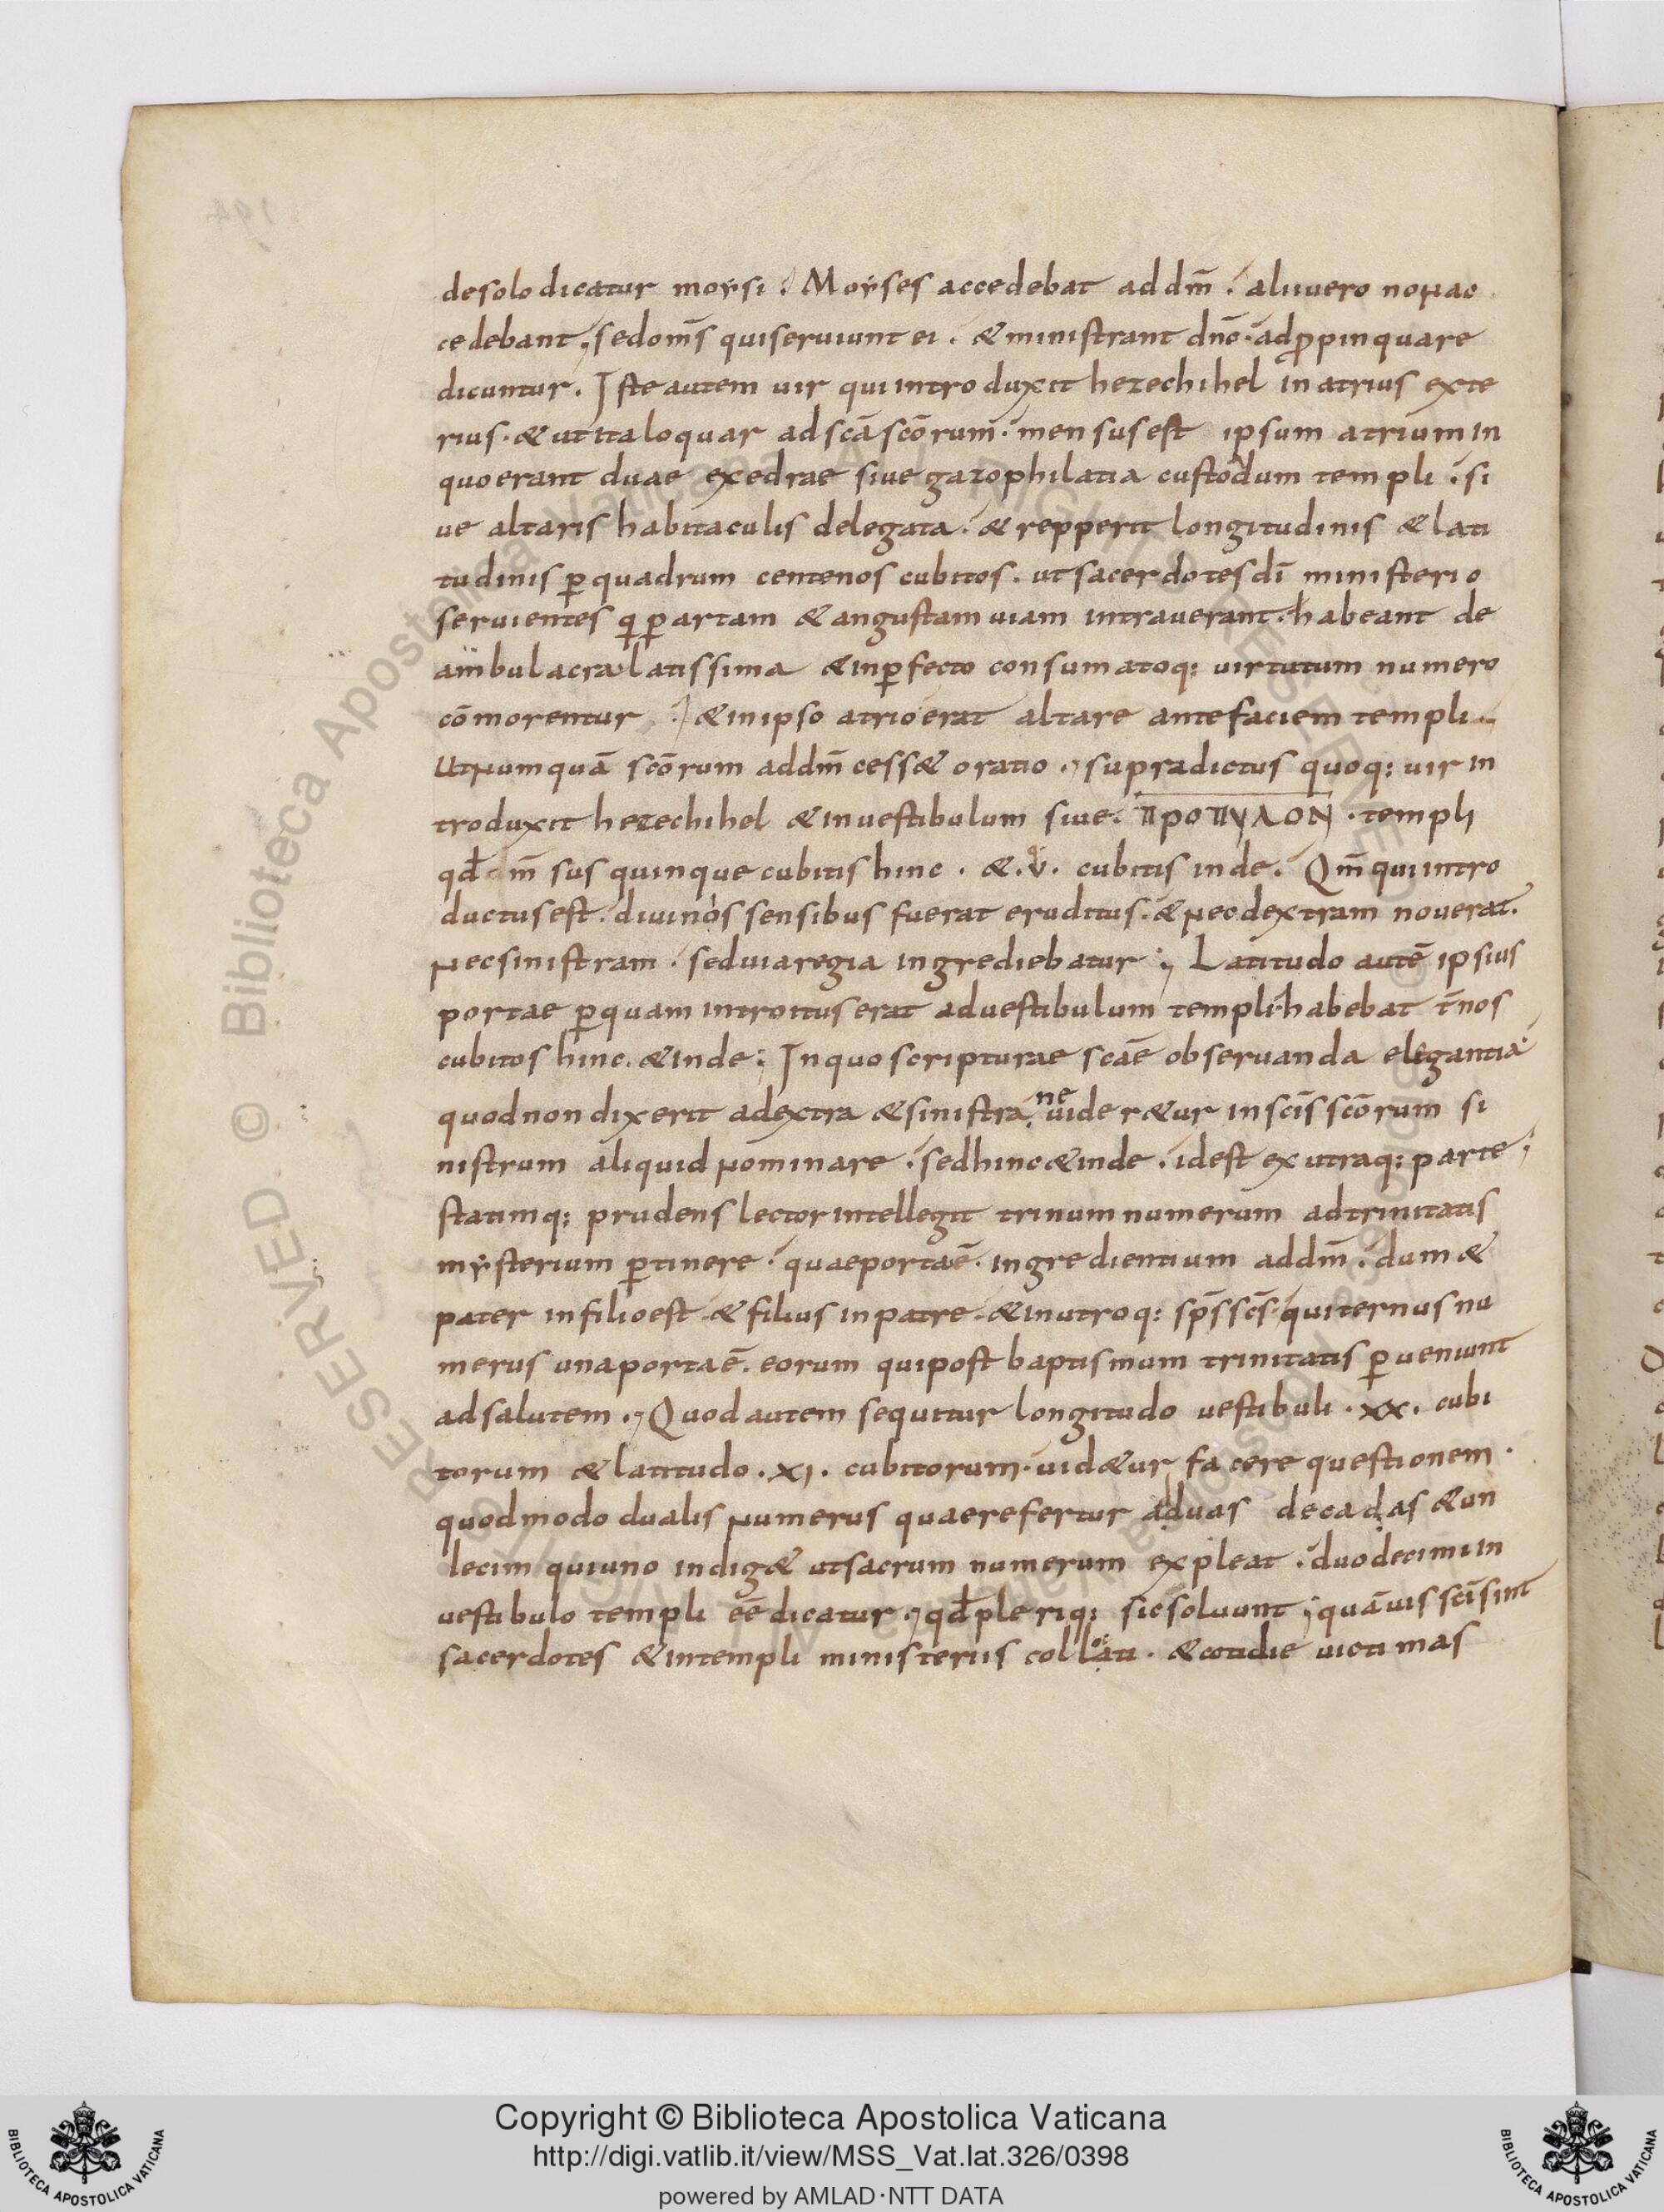 desolo dicatur moÿsi. Moÿses accedebat ad dm̄. alii uero non ac
cedebant, sed om̄s qui seruiunt ei. & ministrant dnē. adꝓpinquare
dicuntur. Iste autem uir qui introduxit hezechihel in atrius exte
rius. & ut ita loquar ad scā scōrum. mensus est ipsum atrium in
quo erant duae exedrae siue gazophilatia custodum templi. si
ue altaris habitaculis delegata. & repperit longitudinis & lati
tudinis ꝑ quadrum centenos cubitos. ut sacerdotes dī ministerio
seruientes qi ꝑ artam & angustam uiam intrauerant. habeant de
ambulacra latissima & in ꝑfecto consumatoq: uirtutum numero
cōmorentur. & in ipso atrio erat altare ante faciem templi.
Ut numquā scōrum ad dm̄ cess& oratio. supradictus quoq: uir in
troduxit hezechihel & in uestibulum siue. ΠΡΟΠΥΛΟΝ. templi
qđ m̄sus quinque cubitis hinc. &. v. cubitis inde. Qm̄ qui intro
ductus est. diuinos sensibus fuerat eruditus. & nec dextram nouerat.
nec sinistram. sed uia regia ingrediebatur; Latitudo autē ipsius
portae ꝑ quam introitus erat ad uestibulum templi. habebat t̄nos
cubitos hinc. & inde; In quo scripturae scāe obseruanda elegantia
quod non dixerit a dextra & sinistra, ne uideret&ur in scīs scōrum si
nistrum aliquid nominare. sed hinc & inde. id est ex utraq: parte;
statimq: prudens lector intellegit trinum numerum ad trinitatis
mÿsterium ꝑtinere. quae porta ē. ingredientium ad dm̄. dum &
pater in filio est. & filius in patre. & in utroq: sp̄s sc̄s. qui ternus nu
merus una porta ē. eorum qui post baptismum trinitatis ꝑueniunt
ad salutem. Quod autem sequitur longitudo uestibuli. xx. cubi
torum & latitudo. xi. cubitorum. uid&ur facere questionem.
quod modo dualis numerus quae refertur ad duas decadas & un
decim qui uno indig& ut sacrum numerum expleat. duodecim in
uestibulo templi ēē dicatur. qđ pleriq: sic soluunt; quāuis scī sint
sacerdotes & in templi ministeriis collocati. & cotidie uictimas
Copyright © Biblioteca Apostolica Vaticana
http://digi.vatlib.it/view/MSS_Vat.lat.326/0398
powered by AMLAD·NTT DATA
BIBLIOTECA APOSTOLICA VATICANA
BIBLIOTECA APOSTOLICA VATICANA